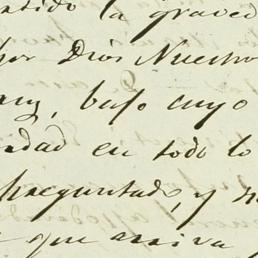 ntido la graved
por Dios Nuestro
bajo cuyo
dad en todo lo
preguntado, y
que arriva